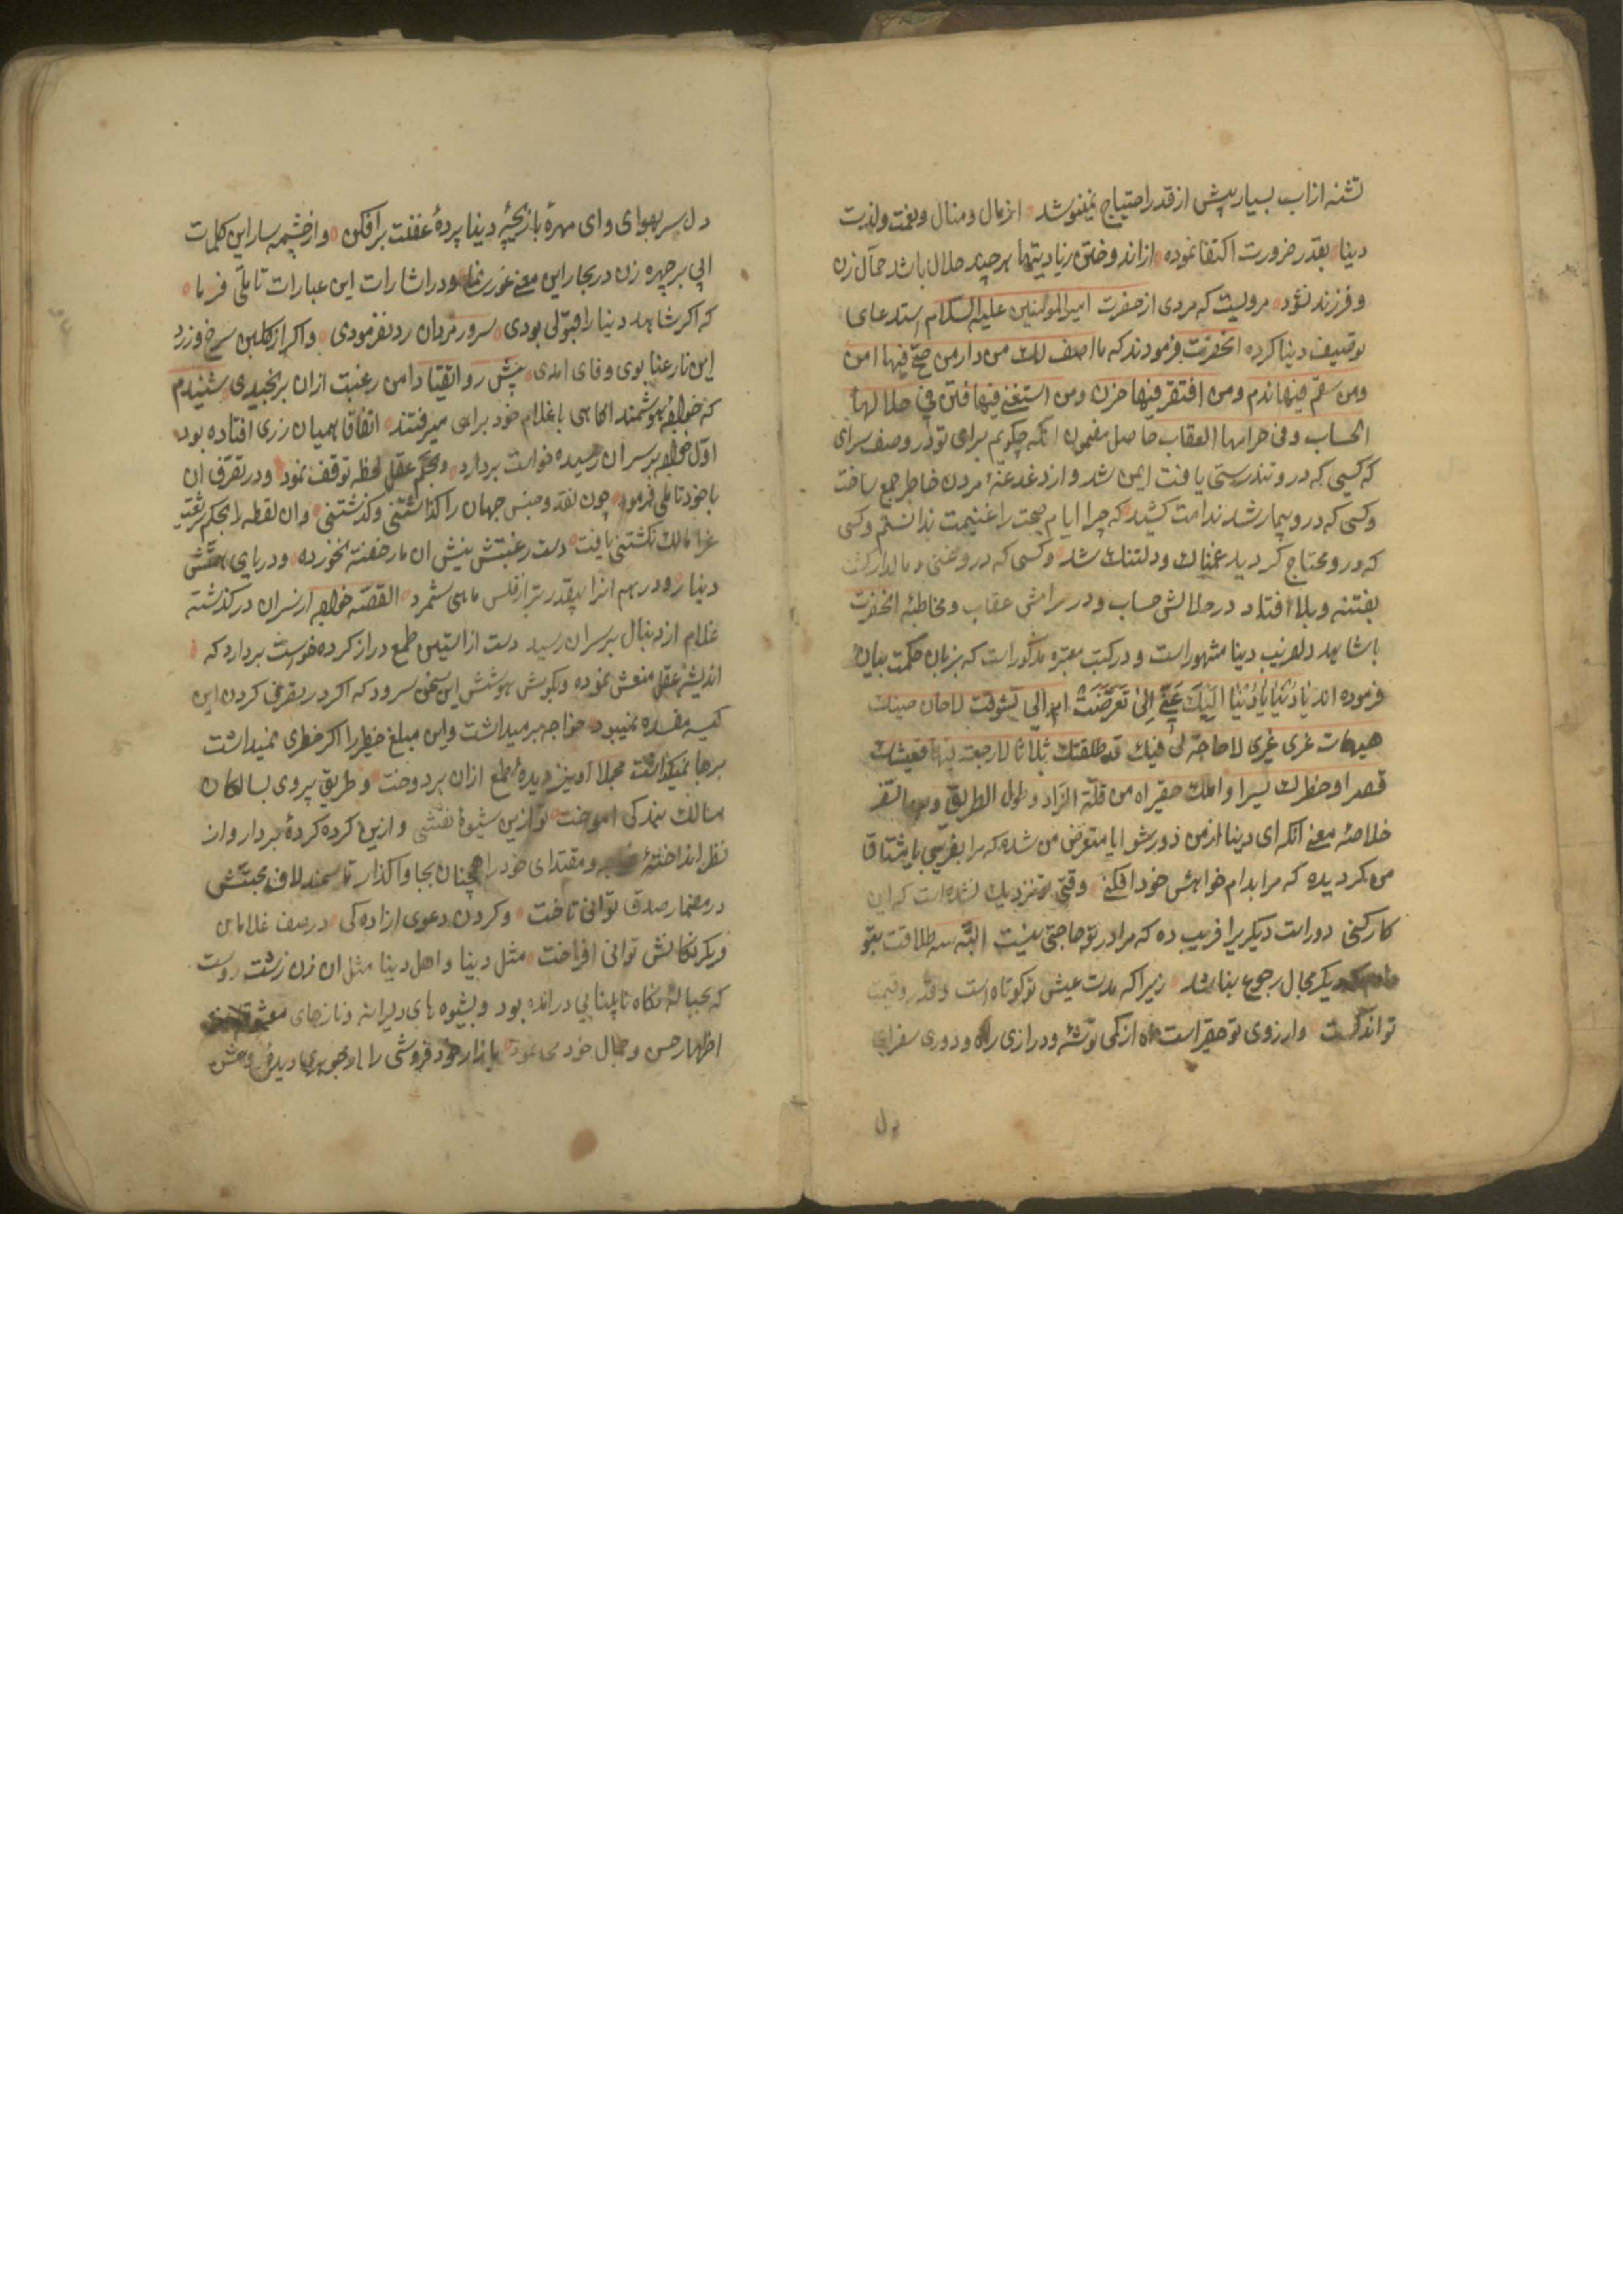 تشنه از آب بسیار بیش از قدر احتیاج نمینوشد از مال و منال و نعمت و لذت
دنیا بقدر ضرورت اکتفا نموده از اندوختن زیادیتها هر چند حلال باشد حمال زن
و فرزند نشود مرویست که مردی از حضرت امیرالمومنین علیه السلام استدعای
توصیف دنیا کرده انحضرت فرمودند که ما اصف لک من دار من صح فیها امن
ومن سقم فیها ندم ومن افتقر فیها حزن ومن استغنی فیها فتن فی حلالها
الحساب وفی حرامها العقاب حاصل مضمون انکه چکویم برای تو در وصف سرای
که کسی که درو تندرستی یافت ایمن شد و از دغدغهٔ مردن خاطر جمع ساخت
وکسی که درو بیمار شد ندامت کشید که چرا ایام صحت را غنیمت ندانستم وکسی
که درو محتاج کردید غمناک و دلتنک شد وکسی که درو غنی و مالدار کشت
بفتنه و بلا افتاد در حلالش حساب و در حرامش عقاب و مخاطبهٔ انحضرت
با شاهد دلفریب دنیا مشهور است و در کتب معتبره مذکور است که بزبان حکمت بیان
فرموده اند یا دُنْیا یا دُنْیا اِلَیْکَ عَنّی اَبی تَعَرَّضْتِ ام الی تشوقت لا حان حینک
هیهات غری غیری لا حاجة لی فیک قد طلقتک ثلاثا لا رجعة فیها فعیشک
قصیر وخطرک یسیر واملک حقیر اه من قلة الزاد وطول الطریق وبعد السفر
خلاصهٔ معنی انکه ای دنیا از من دور شو ایا متعرض من شدهٔ که مرا بفریبی یا مشتاق
من کردیده که مرا بدام خواهش خود افکنی وقتی نزدیک نشده است که این
کار کنی دور است دیکریرا فریب ده که مرا در تو حاجتی نیست البته سه طلاقت بتو
دیکر مجال رجوع نباشد زیرا که مدت عیش تو کوتاه است و قدر و قیمت
تو اندکست وارزوی تو حقیر است اه از کمی توشه و درازی راه و دوری سفر ای
دل
دل بسر بهوای و ای مهرهٔ بازیچهٔ دنیا پردهٔ غفلت برافکن و از چشمه سار این کلمات
ابی بر چهره زن در بحار این معنی غوری نما و در اشارات این عبارات تاملی فرما
که اکر شاهد دنیا را قبولی بودی سرور مردان رد نفرمودی و اکر از کلبن سرخ و زرد
این نار عنا بوی وفای امدی پیش رو اتقیا دامن رغبت ازان برنچیدی شنیدم
که خواجهٔ هوشمند اکاهی با غلام خود براهی میرفتند اتفاقا همیان زری افتاده بود
اول خواجه بر سر ان رسیده خواست بردارد و بحکم عقل لحظه توقف نمود و در تصرف ان
با خود تاملی فرمود چون نقد و جنس جهان را کذاشتنی و کذشتنی و ان لقطه را بحکم شریعت
غرا مالک نکشتنی یافت دست رغبتش نیش ان مار خفته نخورده و در پای همتش
دینار و درهم انرا بیقدر تر از فلس ماهی شمرد القصه خواجه از سر ان درکذشته
غلام از دنبال بر سر ان رسید دست از استین طمع دراز کرده خواست بردارد که
اندیشهٔ عقل منعش نموده و بکوش هوشش این سخن سرود که اکر در تصرف کردن این
کیسه مفسده نمیبود خواجه بر میداشت واین مبلغ خطیر را اکر خطری نمیداشت
بر جا نمیکذاشت مجملا او نیز دیدهٔ طمع ازان بردوخت و طریق پیروی بسالکان
مسالک بندکی اموخت تو ازین شیوهٔ نفسی وازین کرده کردهٔ بردار وان
نظر انداختهٔ و مقتدای خود را همچنان بجا واکذار تا سمند لاف محبتش
در مضمار صدق توانی تاخت و کردن دعوی ازاده کی در صف غلامان
و یکرنکانش توانی افراخت مثل دنیا و اهل دنیا مثل ان زن زشت روست
که بحبالهٔ نکاه نابینایی درامده بود و بشیوه های دلبرانه و نازهای
اظهار حسن و جمال خود می نمود بازار خود فروشی را